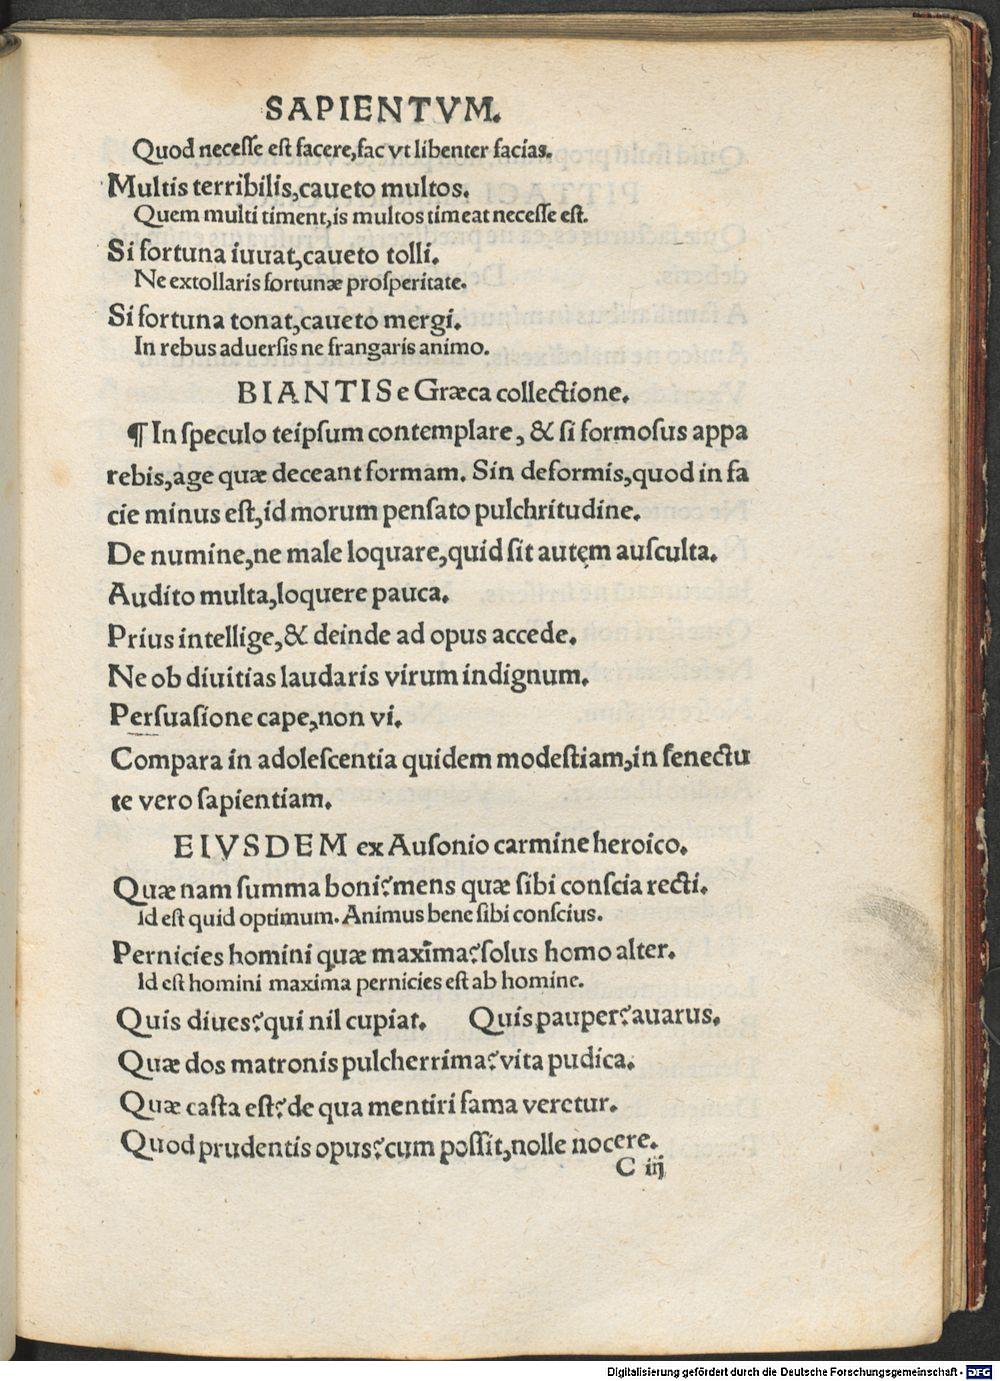 SAPIENTVM.
Quod neceſſe eſt facere, fac vt libenter facias.
Multis terribilis, caueto multos.
Quem multi timent, is multos timeat neceſſe eſt.
Si fortuna iuuat, caueto tolli.
Ne extollaris fortunæ proſperitate.
Si fortuna tonat, caueto mergi.
In rebus aduerſis ne frangaris animo.
BIANTIS e Græca collectione.
¶ In ſpeculo teipſum contemplare, & ſi formoſus appa
rebis, age quæ deceant formam. Sin deformis, quod in fa
cie minus eſt, id morum penſato pulchritudine.
De numine, ne male loquare, quid ſit autem auſculta.
Audito multa, loquere pauca.
Prius intellige, & deinde ad opus accede.
Ne ob diuitias laudaris virum indignum.
Perſuaſione cape, non vi.
Compara in adoleſcentia quidem modeſtiam, in ſenectu
te vero ſapientiam.
EIVSDEM ex Auſonio carmine heroico.
Quæ nam ſumma boni? mens quæ ſibi conſcia recti.
Id eſt quid optimum. Animus bene ſibi conſcius.
Pernicies homini quæ maxima? ſolus homo alter.
Id eſt homini maxima pernicies eſt ab homine.
Quis diues? qui nil cupiat. Quis pauper? auarus.
Quæ dos matronis pulcherrima? vita pudica.
Quæ caſta eſt? de qua mentiri fama veretur.
Quod prudentis opus? cum poſſit, nolle nocere.
C iij
Digitalisierung gefördert durch die Deutsche Forschungsgemeinschaft - DFG